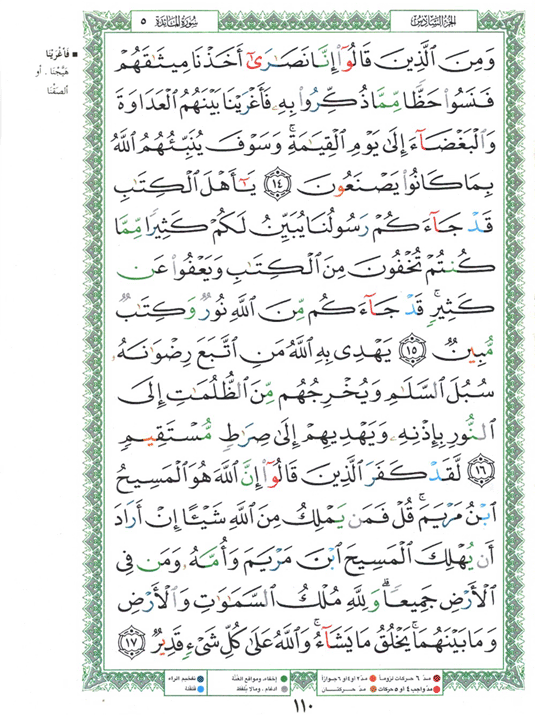 الجزء السادس
سورة المائدة ٥
وَمِنَ ٱلَّذِينَ قَالُوٓا۟ إِنَّا نَصَٰرَىٰٓ أَخَذْنَا مِيثَٰقَهُمْ
فَنَسُوا۟ حَظًّا مِّمَّا ذُكِّرُوا۟ بِهِۦ فَأَغْرَيْنَا بَيْنَهُمُ ٱلْعَدَاوَةَ
وَٱلْبَغْضَآءَ إِلَىٰ يَوْمِ ٱلْقِيَٰمَةِ ۚ وَسَوْفَ يُنَبِّئُهُمُ ٱللَّهُ
بِمَا كَانُوا۟ يَصْنَعُونَ ١٤ يَٰٓأَهْلَ ٱلْكِتَٰبِ
قَدْ جَآءَكُمْ رَسُولُنَا يُبَيِّنُ لَكُمْ كَثِيرًا مِّمَّا
كُنتُمْ تُخْفُونَ مِنَ ٱلْكِتَٰبِ وَيَعْفُوا۟ عَن
كَثِيرٍ ۚ قَدْ جَآءَكُم مِّنَ ٱللَّهِ نُورٌ وَكِتَٰبٌ
مُّبِينٌ ١٥ يَهْدِى بِهِ ٱللَّهُ مَنِ ٱتَّبَعَ رِضْوَٰنَهُۥ
سُبُلَ ٱلسَّلَٰمِ وَيُخْرِجُهُم مِّنَ ٱلظُّلُمَٰتِ إِلَى
ٱلنُّورِ بِإِذْنِهِۦ وَيَهْدِيهِمْ إِلَىٰ صِرَٰطٍ مُّسْتَقِيمٍ
١٦ لَّقَدْ كَفَرَ ٱلَّذِينَ قَالُوٓا۟ إِنَّ ٱللَّهَ هُوَ ٱلْمَسِيحُ
ٱبْنُ مَرْيَمَ ۚ قُلْ فَمَن يَمْلِكُ مِنَ ٱللَّهِ شَيْـًٔا إِنْ أَرَادَ
أَن يُهْلِكَ ٱلْمَسِيحَ ٱبْنَ مَرْيَمَ وَأُمَّهُۥ وَمَن فِى
ٱلْأَرْضِ جَمِيعًا ۗ وَلِلَّهِ مُلْكُ ٱلسَّمَٰوَٰتِ وَٱلْأَرْضِ
وَمَا بَيْنَهُمَا ۚ يَخْلُقُ مَا يَشَآءُ ۚ وَٱللَّهُ عَلَىٰ كُلِّ شَىْءٍ قَدِيرٌ ١٧
فأغرينا
هيّجنا . أو
ألصقنا
مدّ ٦ حركات لزوماً مدّ ٢ أو ٤ أو ٦ جوازاً
مدّ واجب ٤ أو ٥ حركات مدّ حركتان
إخفاء، ومواقع الغنّة
ادغام، وما لا يلفظ
تفخيم الراء
قلقلة
١١٠